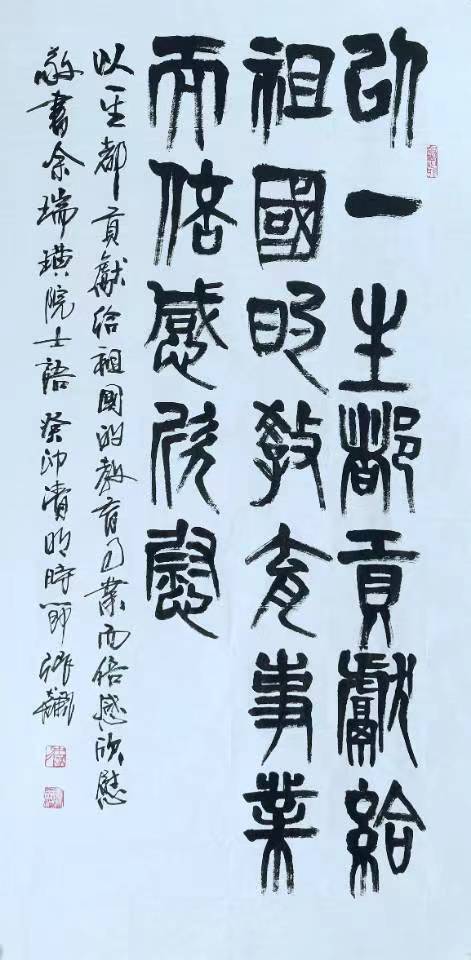 以一生都貢獻給
祖國的教育事業
而倍感欣慰
以一生都貢獻給祖國的教育事業而倍感欣慰
敬書余瑞璜院士語 癸卯清明時節